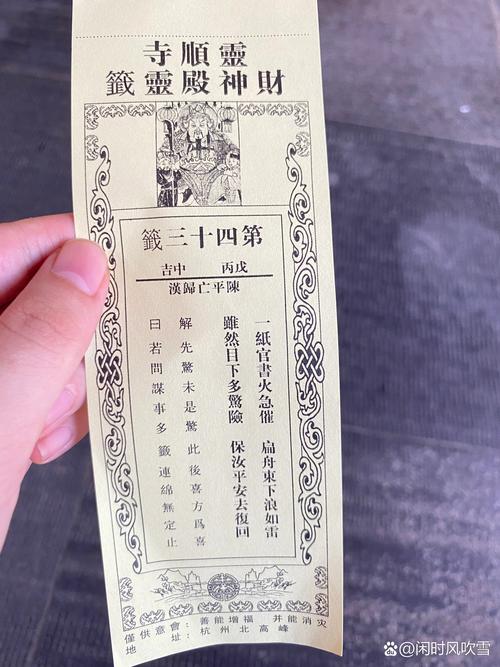 靈順寺
財神殿靈籤
第四十三籤
戊丙 中吉
陳平亡歸漢
一紙官書火急催 扁舟東下浪如雷
雖然目下多驚險 保汝平安去復回
解 先驚未是驚 此後喜方爲喜
曰 若問謀事多 籤連綿無定止
僅供意會：善能增福 并能消灾
地 址：杭州北高峰
@闲时风吹雪